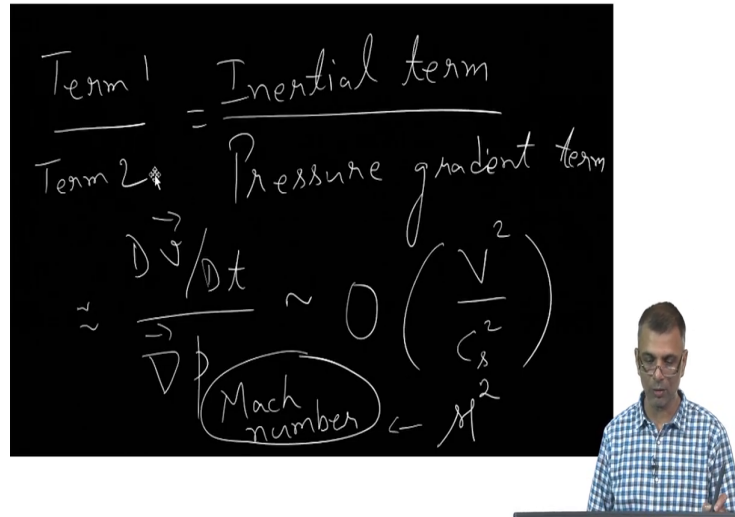 Term 1 = Inertial term
Term 2 Pressure gradent term
≈ D v⃗/Dt ~ O (V²
∇⃗ p C_s²)
Mach number ← M²